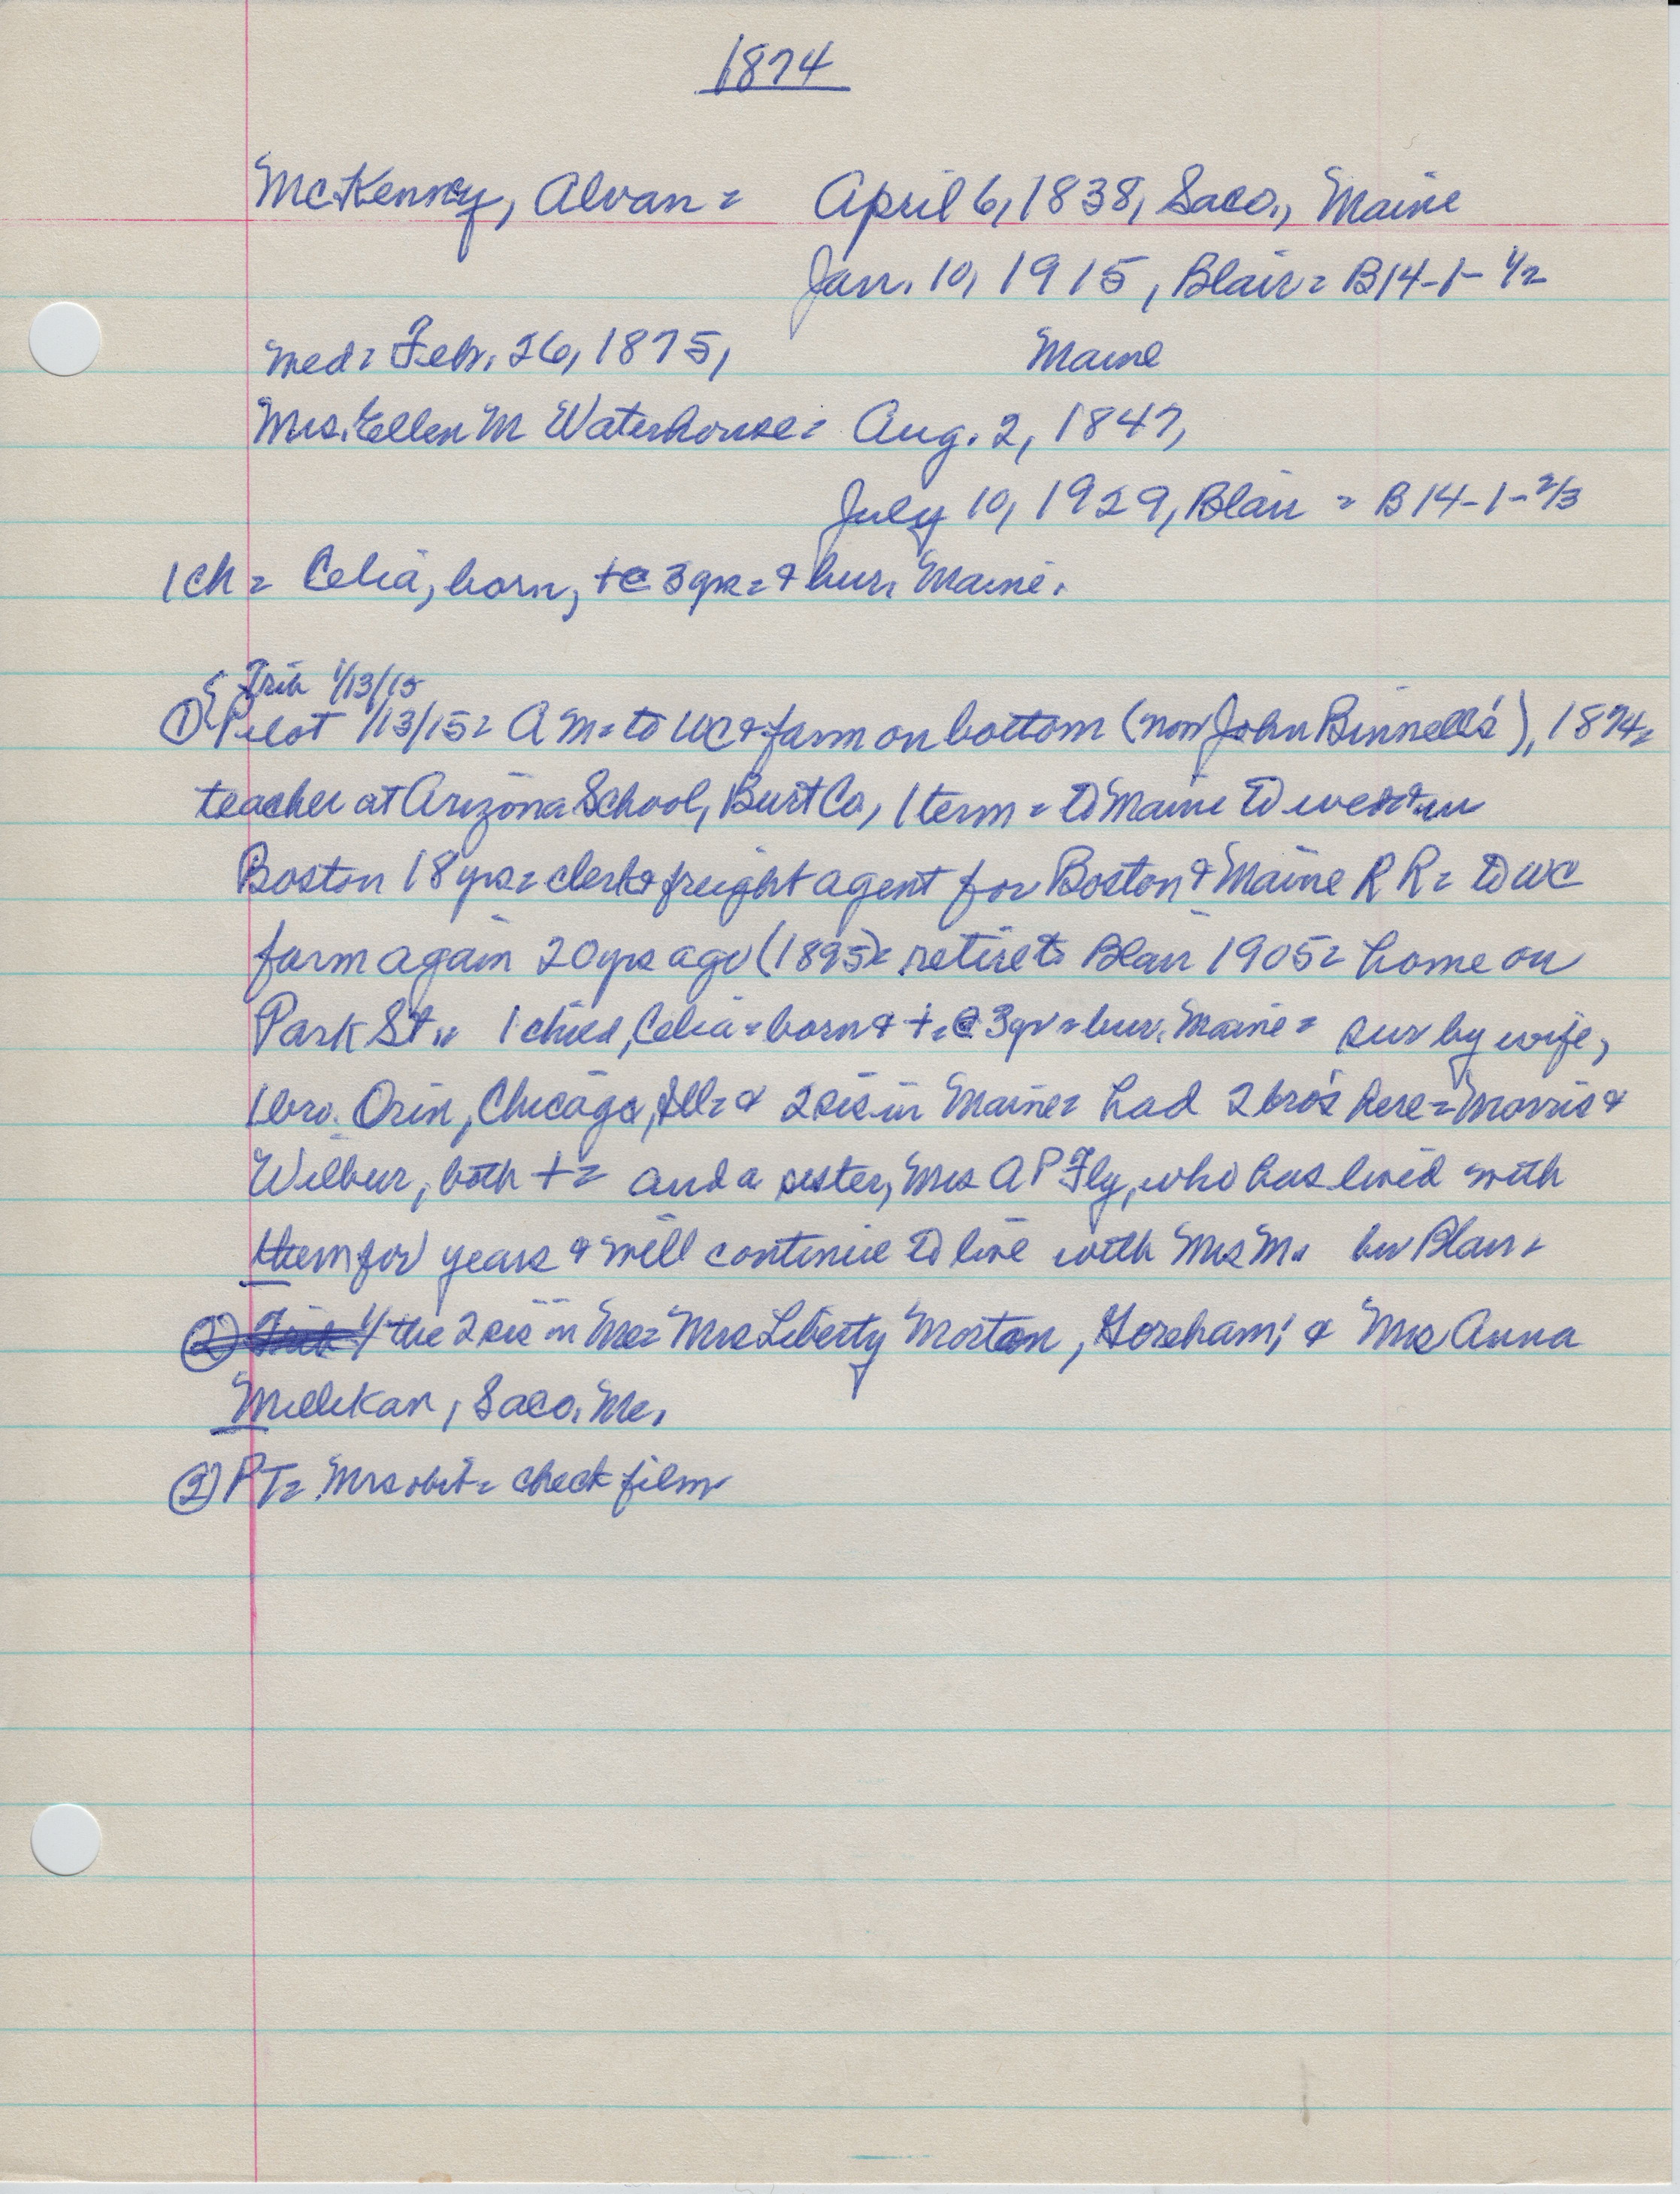 1874
McKenney, Alvan = April 6, 1838, Saco., Maine
Jan. 10, 1915, Blair = B14-1-1/2
med = Feb. 26, 1875, Maine
Mrs. Ellen M Waterhouse = Aug. 2, 1847,
July 10, 1929, Blair = B14-1-2/3
1 ch = Celia, born, + @ 3 yrs = & bur. Maine.
Trib 1/13/15
① Pilot 1/13/15 = A M = to WC & farm on bottom (now John Binnell's), 1874 =
teacher at Arizona School, Burt Co, 1 term = to Maine to wed & in
Boston 18 yrs = clerk & freight agent for Boston & Maine R R = to WC
farm again 20 yrs ago (1895) = retire to Blair 1905 = home on
Park St.. 1 child, Celia = born & + = @ 3 yr = bur. Maine = sur by wife,
1 bro. Orin, Chicago, Ill = & 2 sis in Maine = had 2 bro's here = Morris &
Wilbur, both + = and a sister, Mrs A P Fly, who has lived with
them for years & will continue to live with Mrs M.. bur Blair =
② 1/ the 2 sis in Me = Mrs Liberty Morton, Goreham; & Mrs Anna
Millikan, Saco. Me.
② P T = Mrs obit = check film